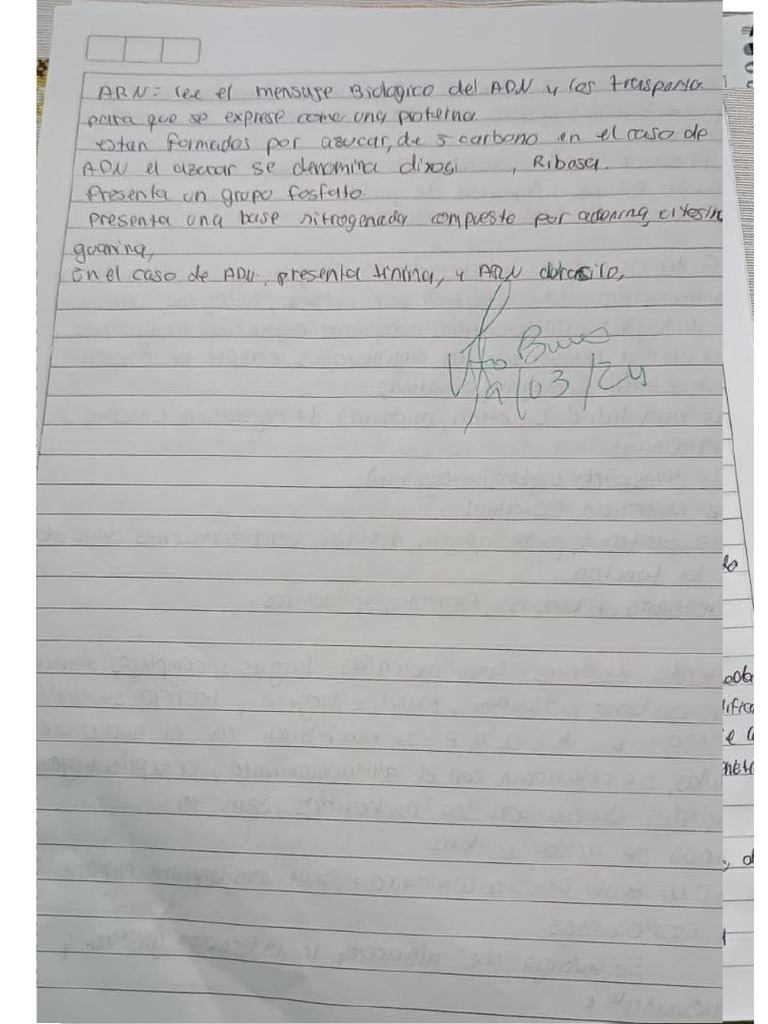 ARN= lee el mensaje Biologico del ADN y los transporta
para que se exprese como una proteina.
estan formados por azucar, de 5 carbono en el caso de
ADN el azucar se denomina dixosi , Ribosa.
Presenta un grupo fosfato.
presenta una base nitrogenada compuesto por adenina, citosin
guanina,
en el caso de ADN, presenta timina, y ARN
Visto Bueno
/03/24